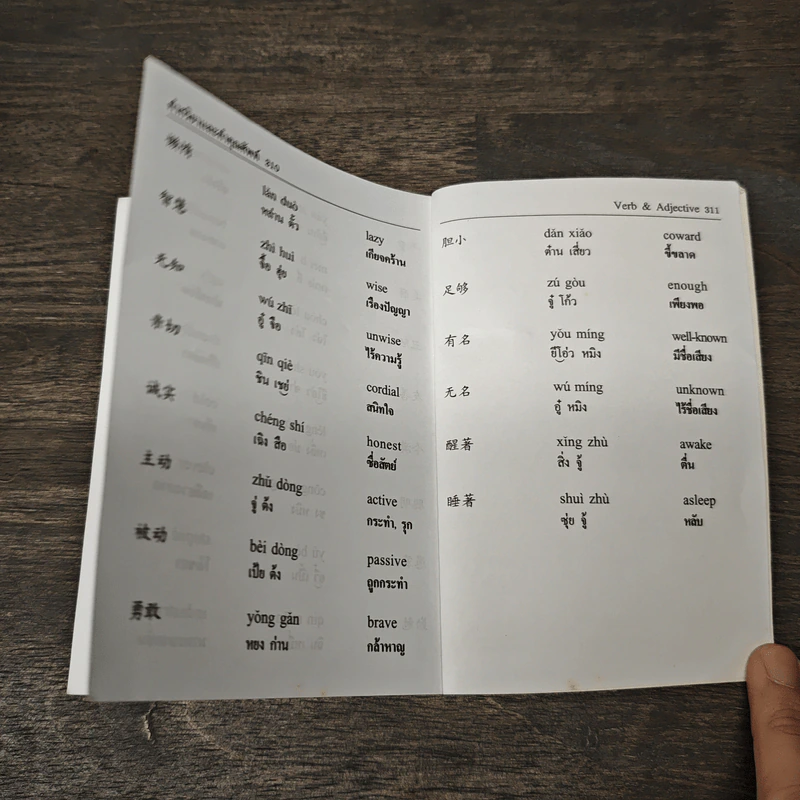 คำกริยาและคำคุณศัพท์ 310
lǎn duò lazy
หล่าน ตั้ว เกียจคร้าน
智慧 zhì huì wise
จื้อ ฮุ่ย เรืองปัญญา
无知 wú zhī unwise
อู๋ จือ ไร้ความรู้
亲切 qīn qiè cordial
ชิน เชยู่ สนิทใจ
诚实 chéng shí honest
เฉิง สือ ซื่อสัตย์
主动 zhǔ dòng active
จู่ ต้ง กระทำ, รุก
被动 bèi dòng passive
เป้ย ต้ง ถูกกระทำ
勇敢 yǒng gǎn brave
หยง ก่าน กล้าหาญ
Verb & Adjective 311
胆小 dǎn xiǎo coward
ต๋าน เสี่ยว ขี้ขลาด
足够 zú gòu enough
จู๋ โก้ว เพียงพอ
有名 yǒu míng well-known
ยีโอ๋ว หมิง มีชื่อเสียง
无名 wú míng unknown
อู๋ หมิง ไร้ชื่อเสียง
醒著 xǐng zhù awake
สิ่ง จู้ ตื่น
睡著 shuì zhù asleep
ซุ่ย จู้ หลับ